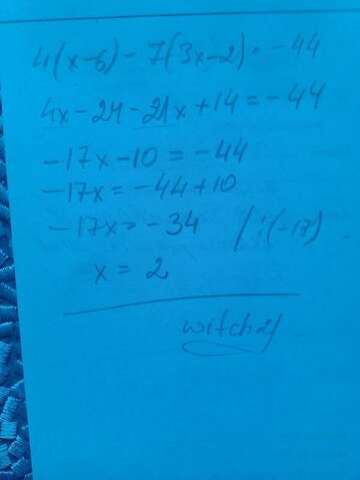 4(x-6) - 7(3x-2) = -44
4x - 24 - 21x + 14 = -44
-17x - 10 = -44
-17x = -44 + 10
-17x = -34 /:(-17)
x = 2